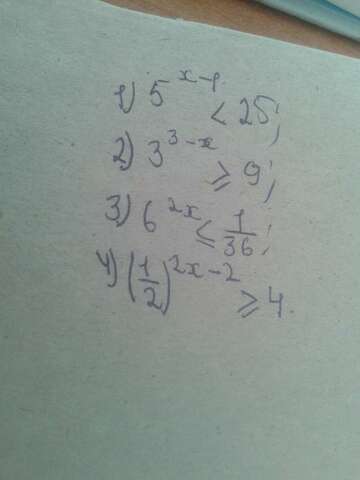 1) 5^{x-1} < 25;
2) 3^{3-x} ⩾ 9;
3) 6^{2x} ⩽ \frac{1}{36};
4) (\frac{1}{2})^{2x-2} ⩾ 4.